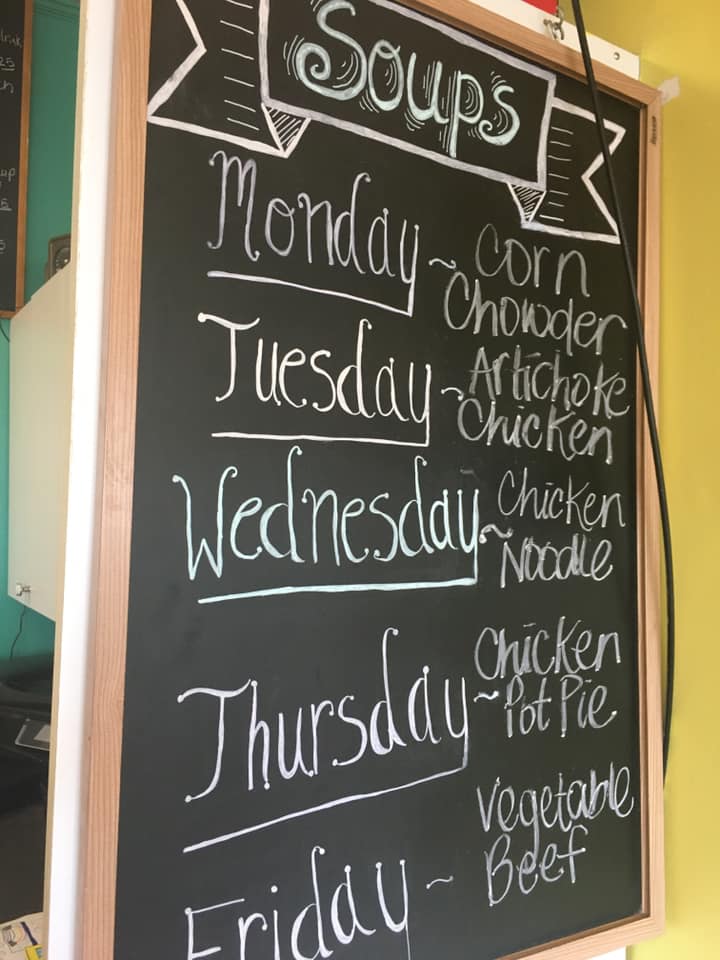 Soups
Monday ~ Corn
Chowder
Tuesday ~ Artichoke
Chicken
Wednesday ~ Chicken
Noodle
Thursday ~ Chicken
Pot Pie
Friday ~ Vegetable
Beef